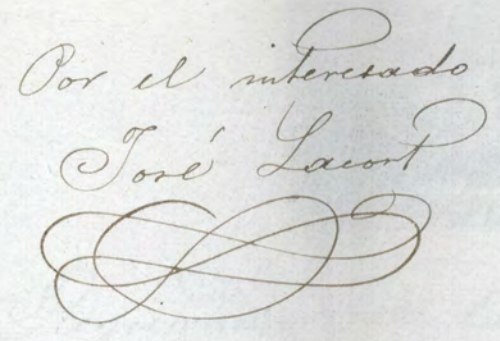 Por el interesado
José Lacort